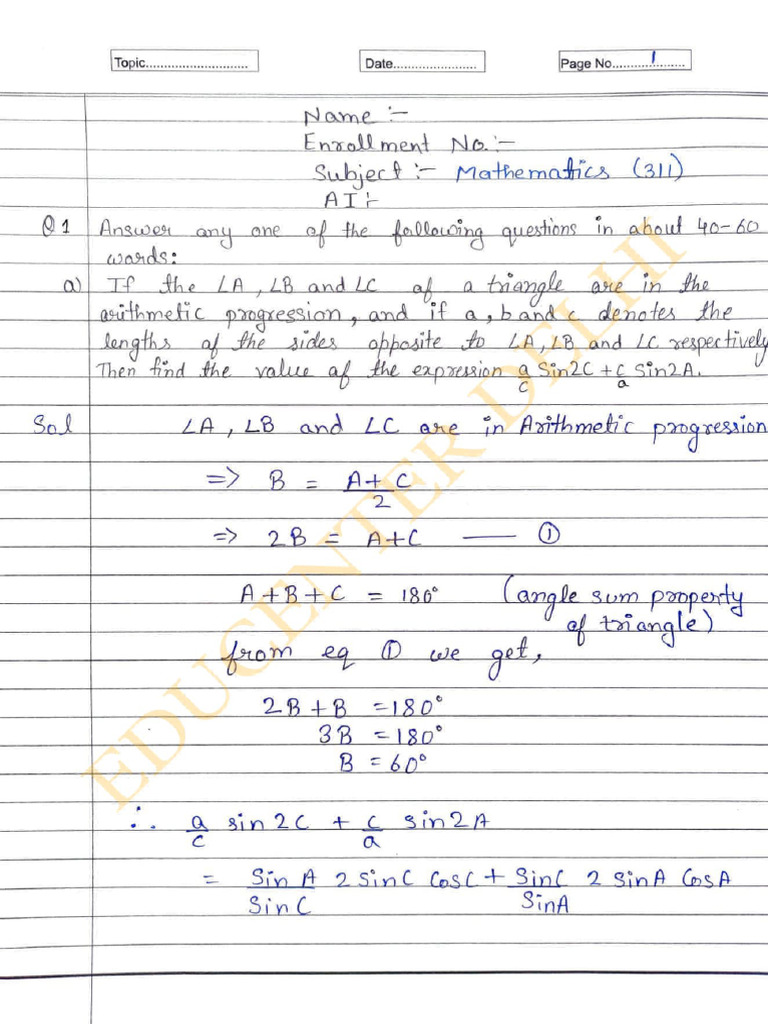 Topic........................... Date........................ Page No....1....
Name :-
Enrollment No. :-
Subject :- Mathematics (311)
AI :-
Q1 Answer any one of the following questions in about 40-60
words:
a) If the ∠A, ∠B and ∠C of a triangle are in the
arithmetic progression, and if a, b and c denotes the
lengths of the sides opposite to ∠A, ∠B and ∠C respectively
Then find the value of the expression a/c Sin2C + c/a Sin2A.
Sol ∠A, ∠B and ∠C are in Arithmetic progression
=> B = A+C/2
=> 2B = A+C —— ①
A+B+C = 180° (angle sum property
of triangle)
from eq ① we get,
2B+B = 180°
3B = 180°
B = 60°
∴ a/c sin2C + c/a sin2A
= SinA/SinC 2 SinC CosC + SinC/SinA 2 SinA CosA
EDUCENTER DELHI